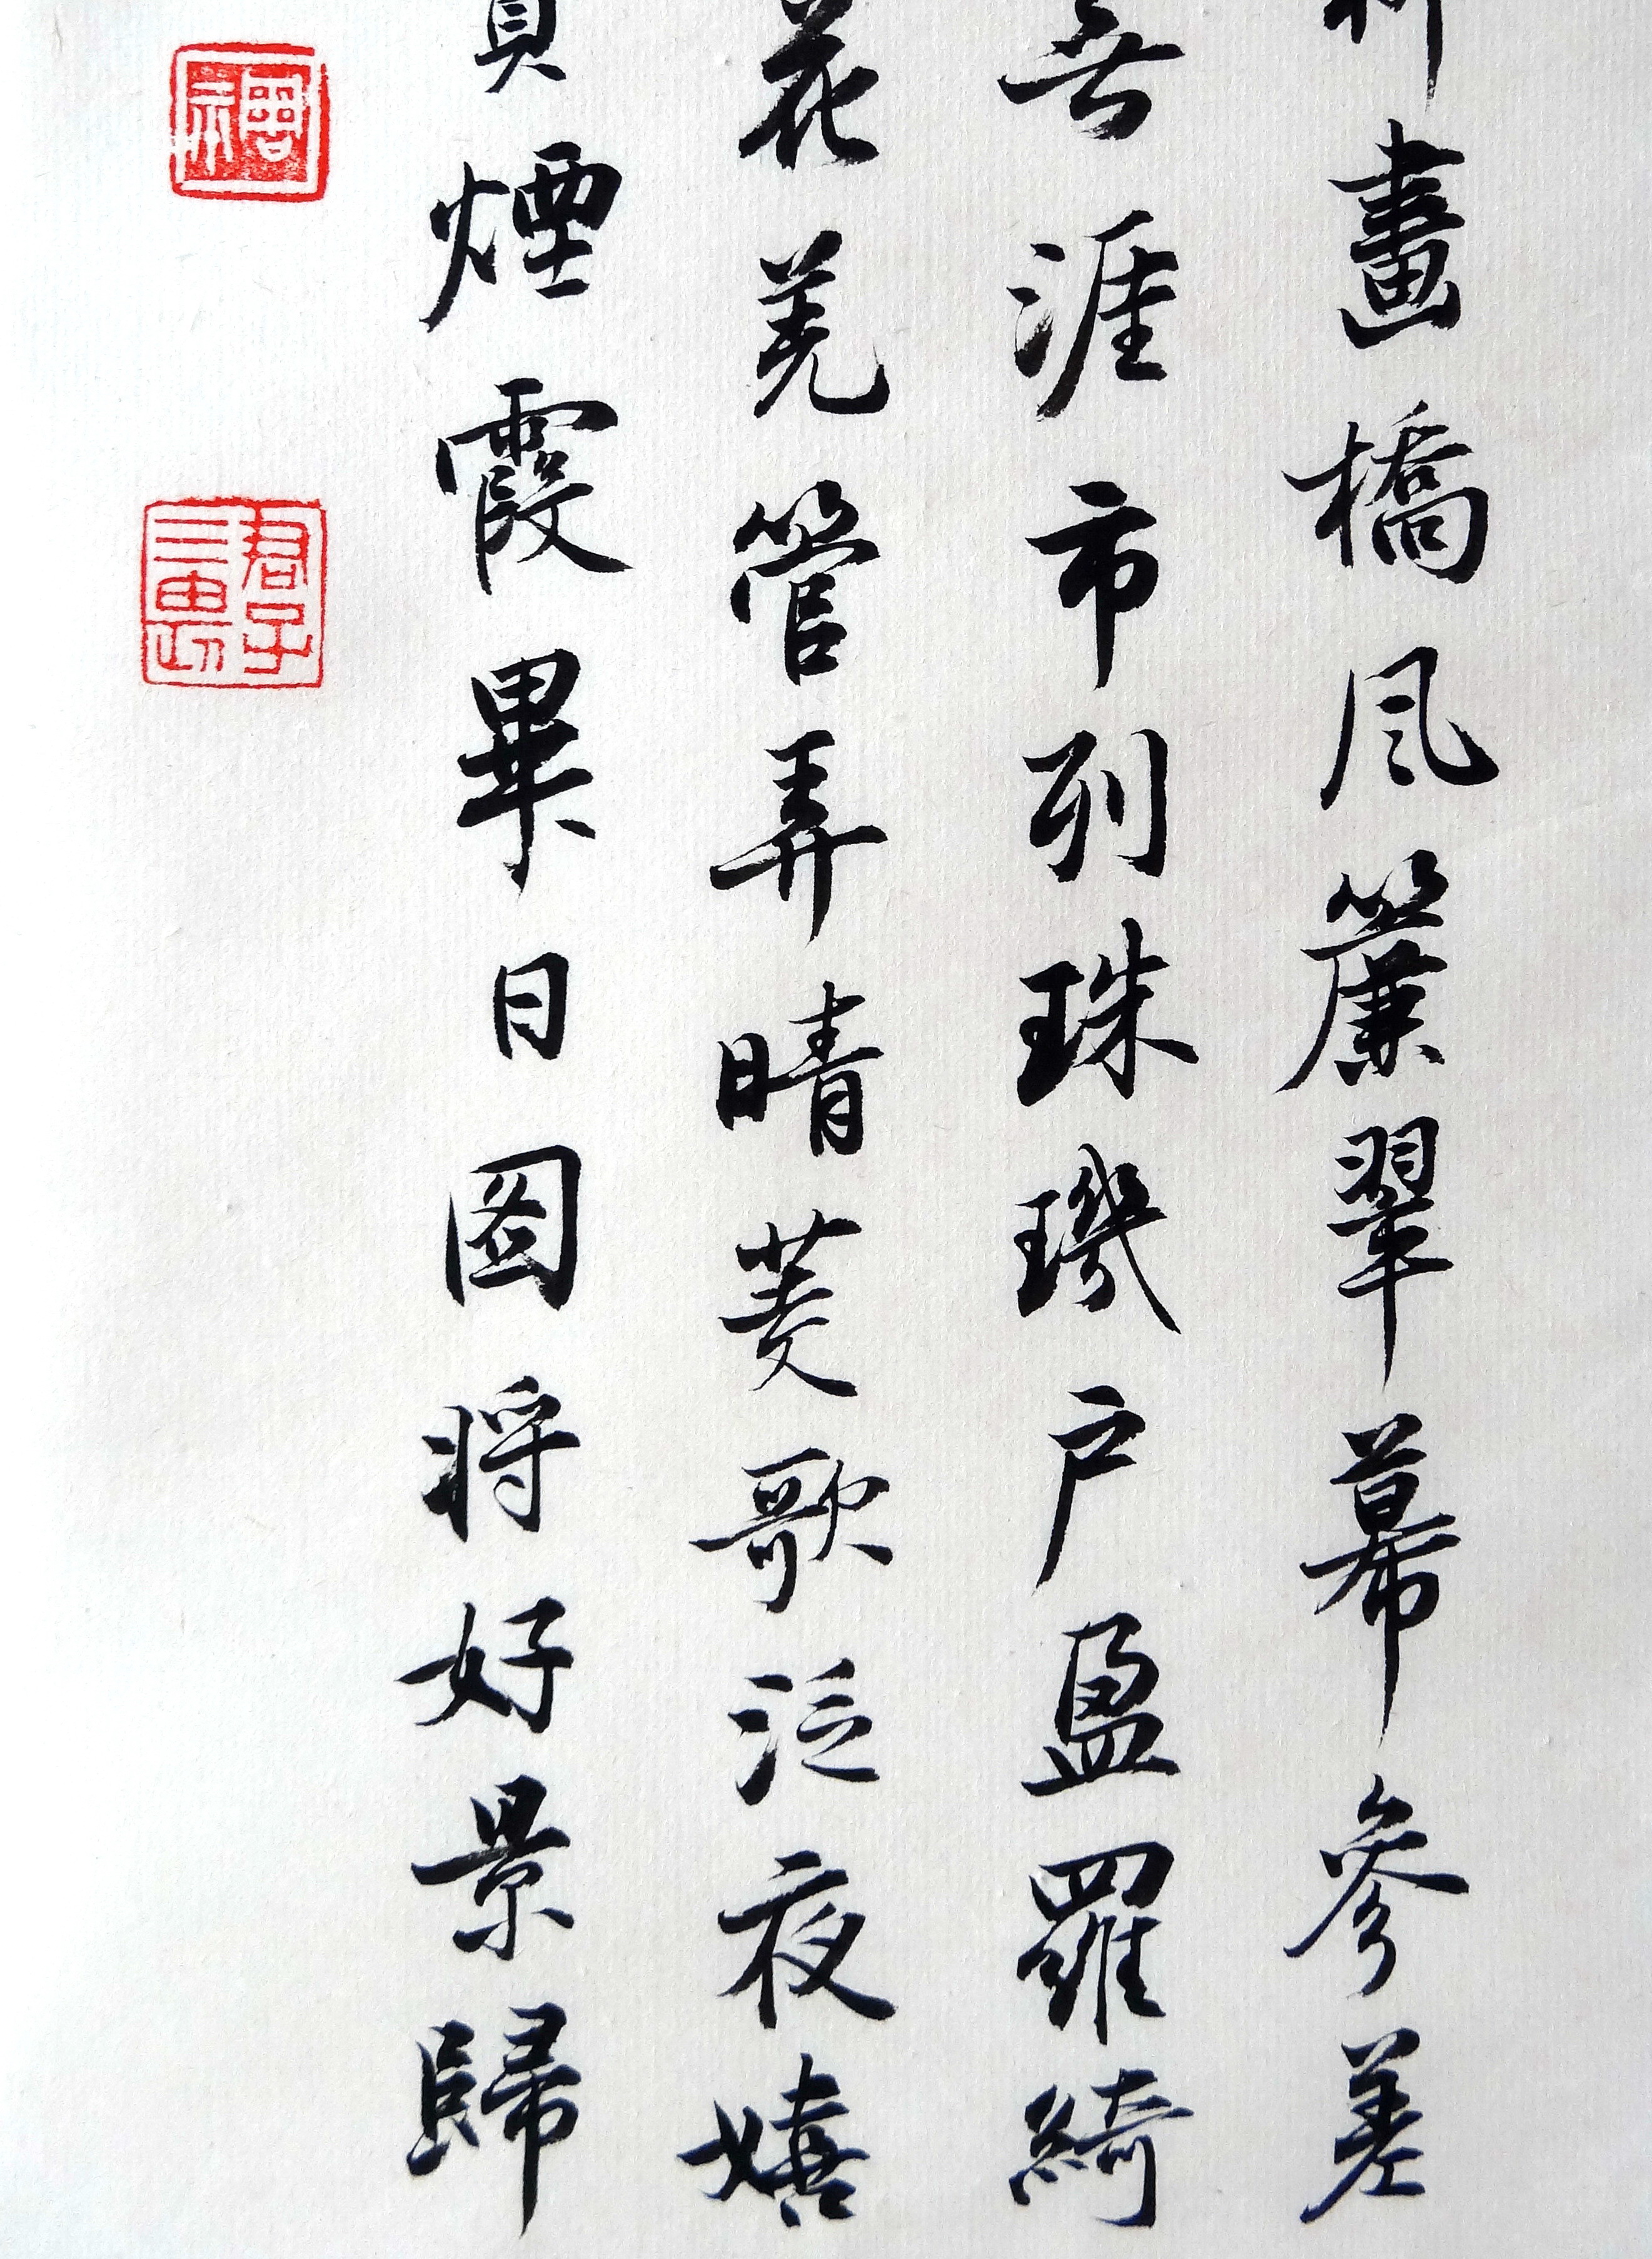 畫橋風簾翠幕參差
無涯市列珠璣户盈羅綺
花羌管弄晴菱歌泛夜嬉
煙霞畢日圖將好景歸
君子